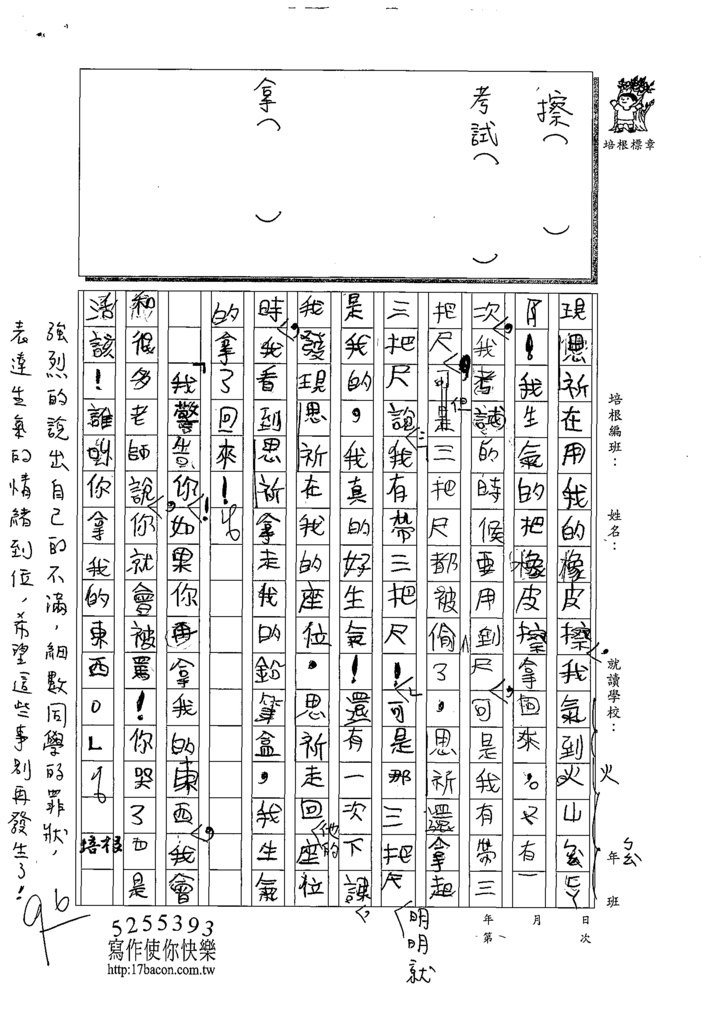 擦（　　）
考試（　　）
拿（　　）
培根標章
培根編班：　姓名：　就讀學校：　年　班
現思祈在用我的橡皮擦，我氣到火山爆
月！我生氣的把橡皮擦拿回來。又有一
次，我考試的時候要用到尺，可是我有帶三
把尺，但是三把尺都被偷了，思祈還拿起
三把尺說：「我有帶三把尺！」可是那三把尺明明就
是我的，我真的好生氣！還有一次下課，
我發現思祈在我的座位，思祈走回他的座位
時，我看到思祈拿走我的鉛筆盒，我生氣
的拿了回來！
「我警告你！如果你再拿我的東西，我會
和很多老師說，你就會被罵！你哭了也是
活該！誰叫你拿我的東西。」
培根
年　月　日
第　次
強烈的說出自己的不滿，細數同學的罪狀，
表達生氣的情緒到位，希望這些事別再發生了！
96
5255393
寫作使你快樂
http:17bacon.com.tw